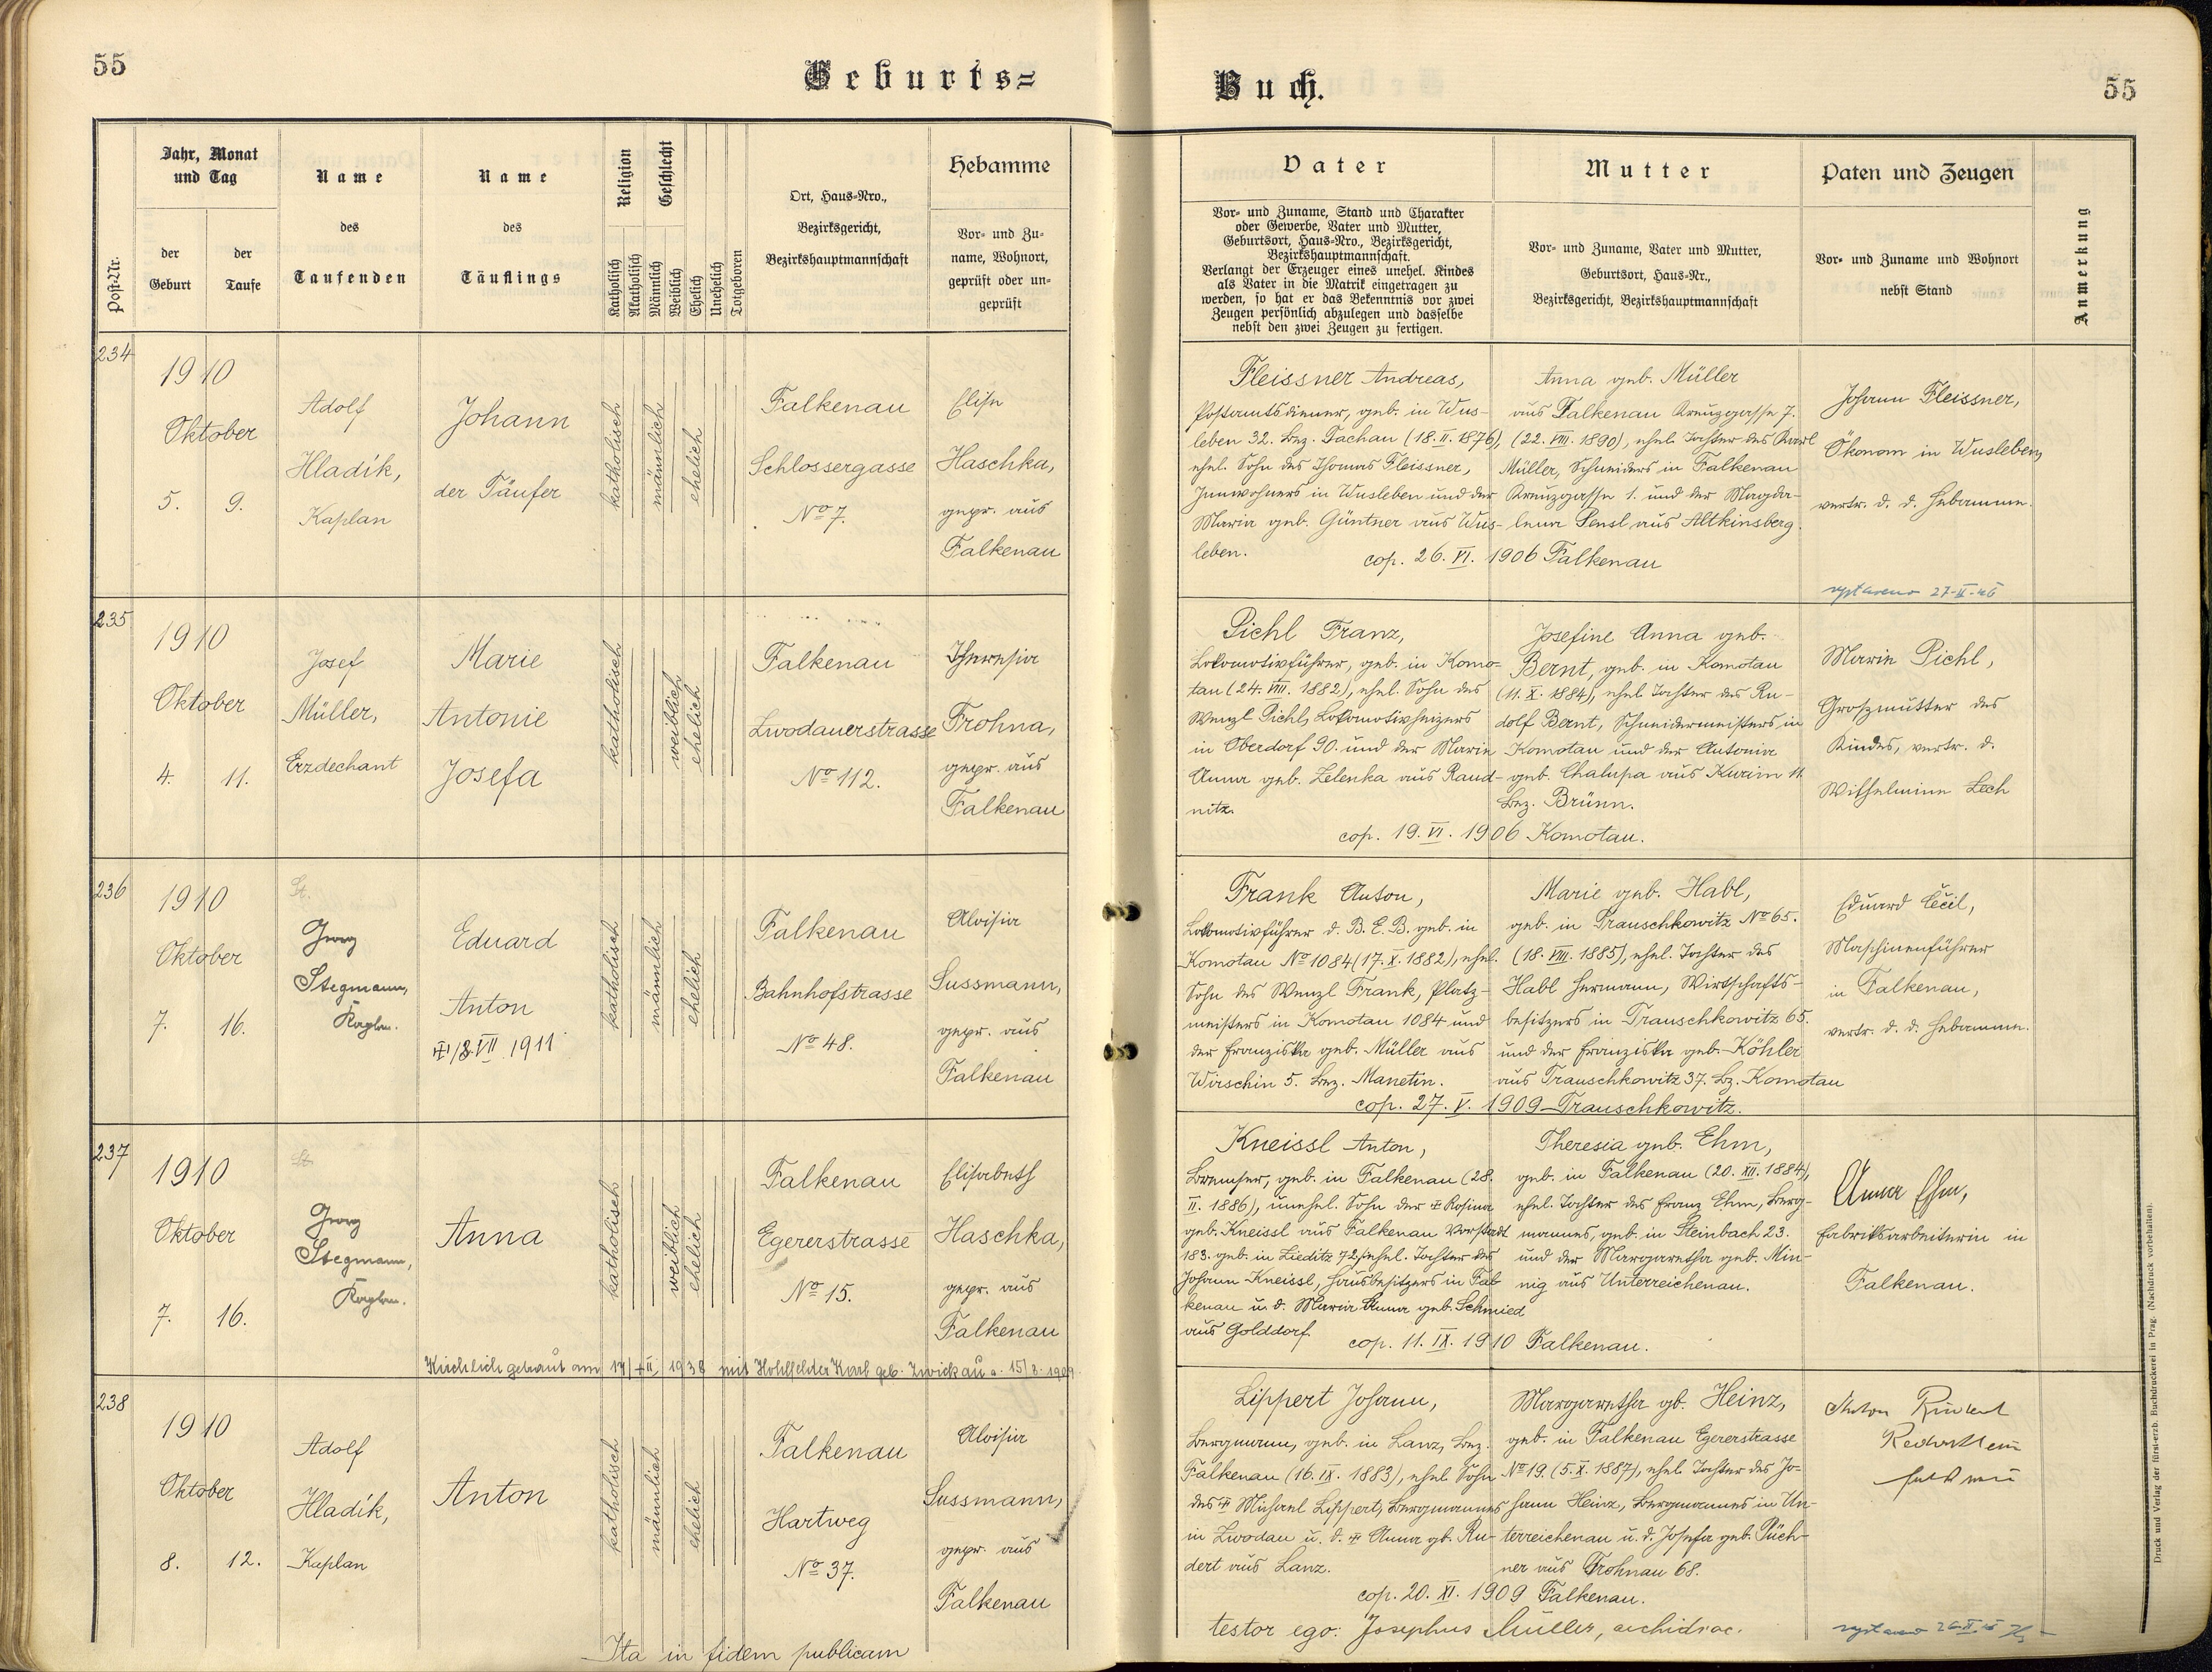 55
Geburts=
Post-Nr.
Jahr, Monat
und Tag
der
Geburt
der
Taufe
Name
des
Taufenden
Name
des
Täuflings
Religion
Katholisch
Akatholisch
Geschlecht
Männlich
Weiblich
Ehelich
Unehelich
Totgeboren
Ort, Haus-Nro.,
Bezirksgericht,
Bezirkshauptmannschaft
Hebamme
Vor- und Zu-
name, Wohnort,
geprüft oder un-
geprüft
234
1910
Oktober
5. 9.
Adolf
Hladík,
Kaplan
Johann
der Täufer
katholisch
männlich
ehelich
Falkenau
Schlossergasse
No 7.
Elise
Haschka,
gepr. aus
Falkenau
235
1910
Oktober
4. 11.
Josef
Müller,
Erzdechant
Marie
Antonie
Josefa
katholisch
weiblich
ehelich
Falkenau
Zwodauerstrasse
No 112.
Theresia
Frohna,
gepr. aus
Falkenau
236
1910
Oktober
7. 16.
St.
Georg
Stegmann,
Kaplan.
Eduard
Anton
katholisch
männlich
ehelich
Falkenau
Bahnhofstrasse
No 48.
Aloisia
Sussmann,
gepr. aus
Falkenau
237
1910
Oktober
7. 16.
St.
Georg
Stegmann,
Kaplan.
Anna
katholisch
weiblich
ehelich
Falkenau
Egererstrasse
No 15.
Elisabeth
Haschka,
gepr. aus
Falkenau
Kirchlich getraut am 17/II. 1938 mit Hohlfelder Karl geb. Zwickau a. 15/8. 1909.
238
1910
Oktober
8. 12.
Adolf
Hladík,
Kaplan
Anton
katholisch
männlich
ehelich
Falkenau
Hartweg
No 37.
Aloisia
Sussmann,
gepr. aus
Falkenau
Ita in fidem publicam
Buch.
55
Vater
Vor- und Zuname, Stand und Charakter
oder Gewerbe, Vater und Mutter,
Geburtsort, Haus-Nro., Bezirksgericht,
Bezirkshauptmannschaft.
Verlangt der Erzeuger eines unehel. Kindes
als Vater in die Matrik eingetragen zu
werden, so hat er das Bekenntnis vor zwei
Zeugen persönlich abzulegen und dasselbe
nebst den zwei Zeugen zu fertigen.
Mutter
Vor- und Zuname, Vater und Mutter,
Geburtsort, Haus-Nr.,
Bezirksgericht, Bezirkshauptmannschaft
Paten und Zeugen
Vor- und Zuname und Wohnort
nebst Stand
Anmerkung
Fleissner Andreas,
Postamtsdiener, geb. in Wus-
leben 32. Bez. Tachau (18. II. 1876),
ehel. Sohn des Thomas Fleissner,
Innwohners in Wusleben und der
Maria geb. Güntner aus Wus-
leben.
Anna geb. Müller
aus Falkenau Kreuzgasse 7.
(22. VIII. 1890), ehel. Tochter des Karl
Müller, Schneiders in Falkenau
Kreuzgasse 1. und der Magda-
lena Sensl aus Altkinsberg.
cop. 26. VI. 1906 Falkenau
Johann Fleissner,
Ökonom in Wusleben,
vertr. d. d. Hebamme.
Pichl Franz,
Lokomotivführer, geb. in Komo-
tau (24. VIII. 1882), ehel. Sohn des
Wenzl Pichl, Lokomotivheizers
in Oberdorf 90. und der Marie
Anna geb. Zelenka aus Raud-
nitz.
Josefine Anna geb.
Bernt, geb. in Komotau
(11. X. 1884), ehel. Tochter des Ru-
dolf Bernt, Schneidermeisters in
Komotau und der Antonia
geb. Chalupa aus Kurim 11.
Bez. Brünn.
cop. 19. VI. 1906 Komotau.
Marie Pichl,
Grossmutter des
Kindes, vertr. d.
Wilhelmine Lech
Frank Anton,
Lokomotivführer d. B. E. B. geb. in
Komotau No 1084 (17. X. 1882), ehel.
Sohn des Wenzl Frank, Platz-
meisters in Komotau 1084 und
der Franziska geb. Müller aus
Wirschin 5. Bez. Manetin.
Marie geb. Habl,
geb. in Trauschkowitz No 65.
(18. VIII. 1885), ehel. Tochter des
Habl Hermann, Wirtschafts-
besitzers in Trauschkowitz 65.
und der Franziska geb. Köhler
aus Trauschkowitz 37. Bz. Komotau
cop. 27. V. 1909 Trauschkowitz.
Eduard Čečil,
Maschinenführer
in Falkenau,
vertr. d. d. Hebamme.
Kneissl Anton,
Bremser, geb. in Falkenau (28.
II. 1886), unehel. Sohn der ☩ Rosina
geb. Kneissl aus Falkenau Vorstadt
183. geb. in Zieditz 72, ehel. Tochter des
Johann Kneissl, Hausbesitzers in Fal-
kenau u. d. Maria Anna geb. Schmied
aus Golddorf.
Theresia geb. Ehm,
geb. in Falkenau (20. XII. 1884),
ehel. Tochter des Franz Ehm, Berg-
mannes, geb. in Steinbach 23.
und der Margaretha geb. Min-
nig aus Unterreichenau.
cop. 11. IX. 1910 Falkenau.
Anna Ehm,
Fabriksarbeiterin in
Falkenau.
Lippert Johann,
Bergmann, geb. in Lanz, Bez.
Falkenau (16. IX. 1883), ehel. Sohn
des ☩ Michael Lippert, Bergmannes
in Zwodau u. d. ☩ Anna gb. Ru-
dert aus Lanz.
Margaretha gb. Heinz,
geb. in Falkenau Egererstrasse
No 19. (5. X. 1887), ehel. Tochter des Jo-
hann Heinz, Bergmannes in Un-
terreichenau u. d. Josefa geb. Püch-
ner aus Frohnau 68.
cop. 20. XI. 1909 Falkenau.
Anton
testor ego: Josephus Müller, archidiac.
Druck und Verlag der fürst-erzb. Buchdruckerei in Prag. (Nachdruck vorbehalten).